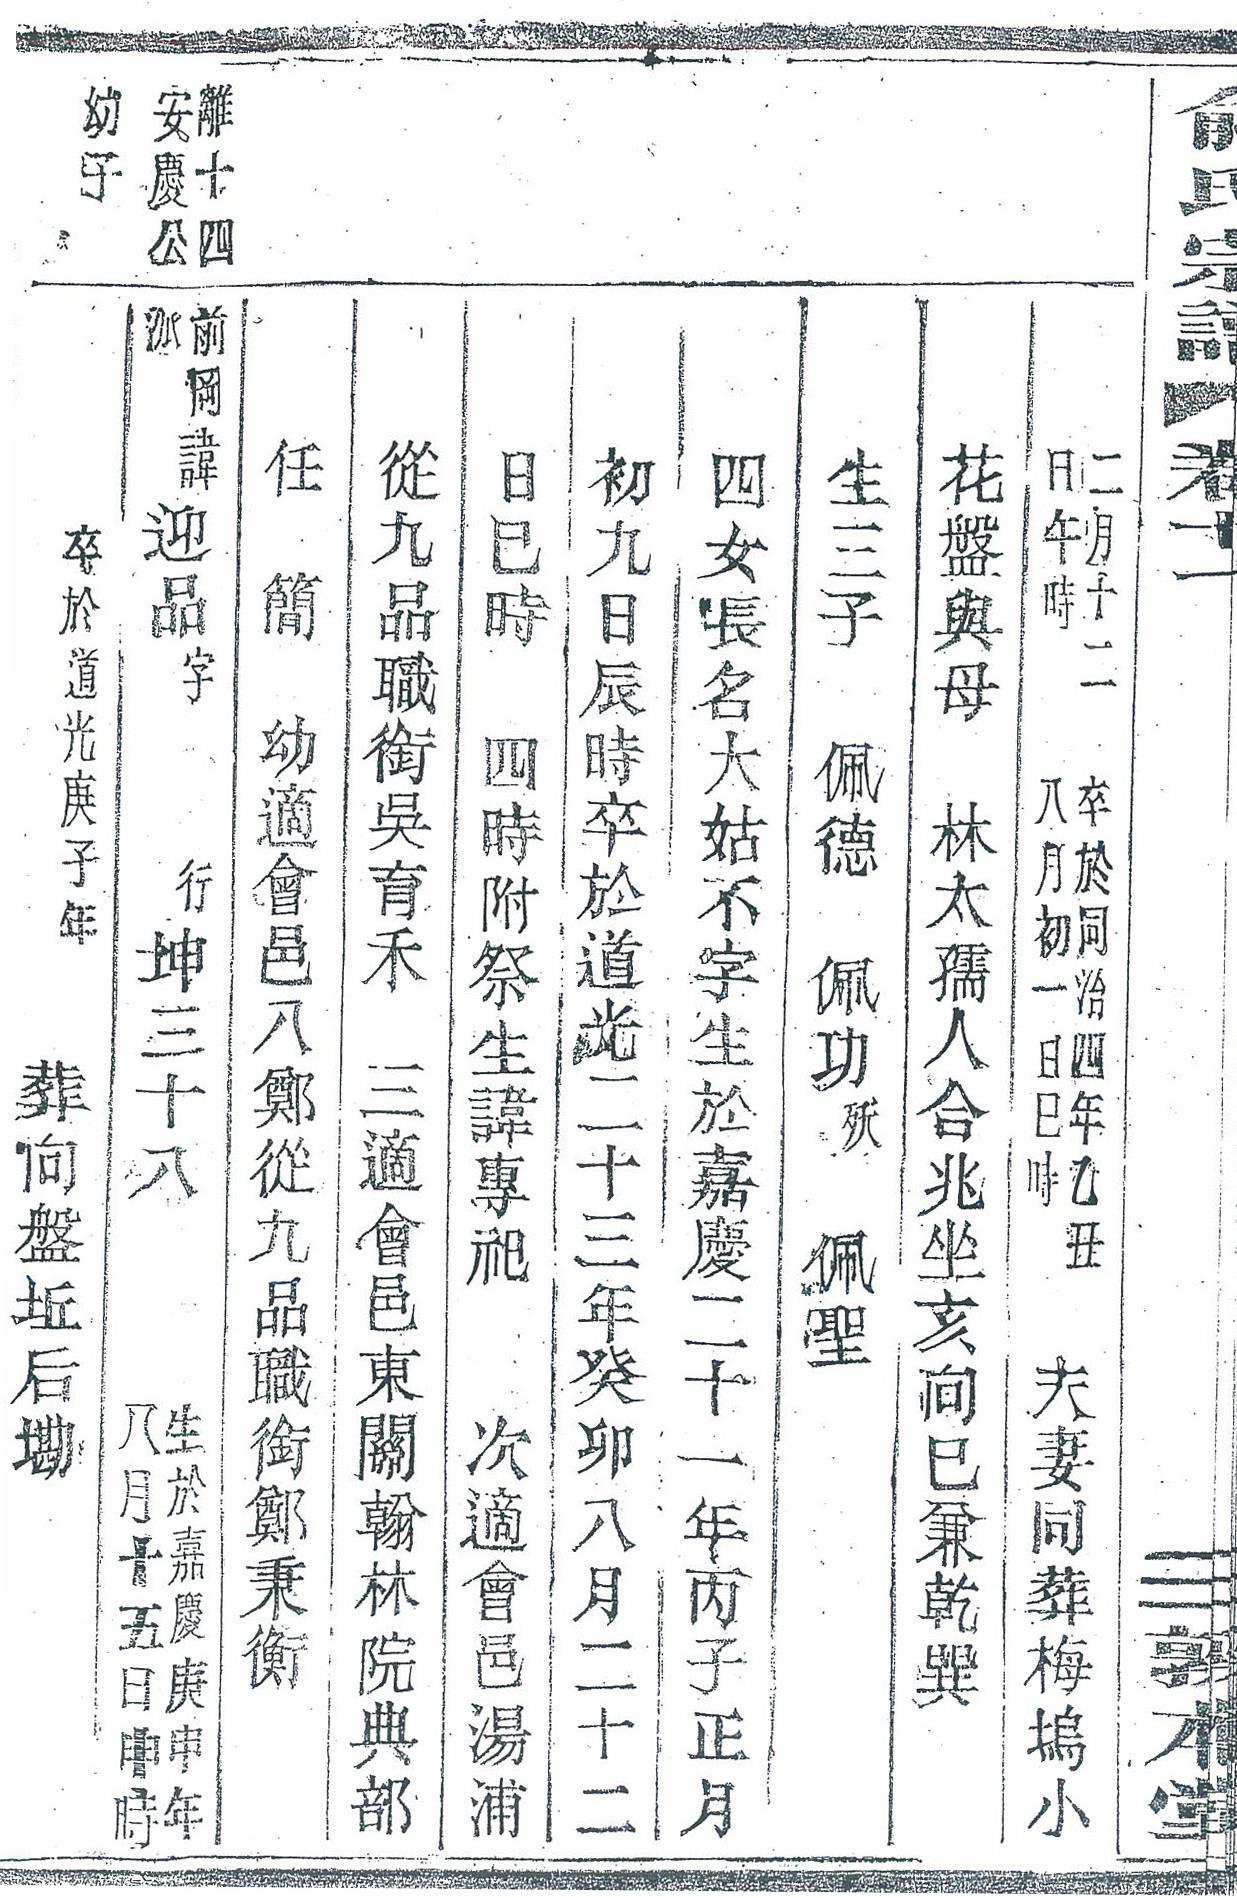 俞氏宗譜 卷十一 三 敦本堂
二月十二
日午時
卒於同治四年乙丑
八月初一日巳時
夫妻同葬梅塢小
花盤與母 林太孺人合兆坐亥向巳兼乾巽
生三子 佩德 佩功 殀 佩聖
四女長名大姑不字生於嘉慶二十一年丙子正月
初九日辰時卒於道光二十三年癸卯八月二十二
日巳時 四時附祭生諱專祀 次適會邑湯浦
從九品職銜吳育禾 三適會邑東關翰林院典部
任 簡 幼適會邑八鄭從九品職銜鄭秉衡
離十四
安慶公
幼子
前岡諱
派
迎品 字 行 坤三十八
生於嘉慶庚申年
八月十五日申時
卒於道光庚子年 葬向盤坵后墈